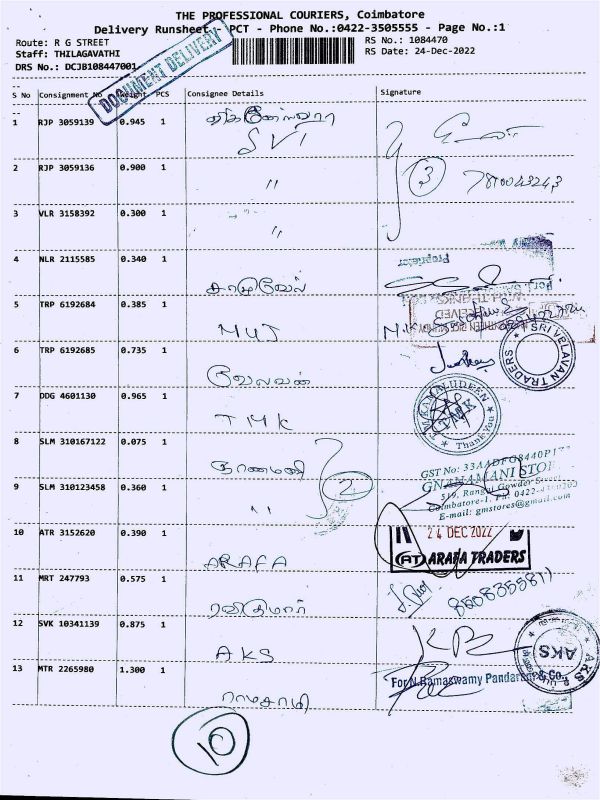 THE PROFESSIONAL COURIERS, Coimbatore
Delivery Runsheet PCT - Phone No.:0422-3505555 - Page No.:1
Route: R G STREET RS No.: 1084470
Staff: THILAGAVATHI RS Date: 24-Dec-2022
DRS No.: DCJB108447001
DOCUMENT DELIVERY
S No Consignment No Weight PCS Consignee Details Signature
1 RJP 3059139 0.945 1 SVI
2 RJP 3059136 0.900 1 " 3
3 VLR 3158392 0.300 1 "
Proprietor
4 NLR 2115585 0.340 1
5 TRP 6192684 0.385 1 MUJ
SRI VELAVAN TRADERS
6 TRP 6192685 0.735 1 வேலவன்
7 DDG 4601130 0.965 1 TMK
T.M.KAMALUDEEN TMK Thank You
8 SLM 310167122 0.075 1 ஞானமணி 2
GST No:
GNANAMANI STORE
519, Rangai Gowder Street
Coimbatore-1.
E-mail: gmstores@gmail.com
9 SLM 310123458 0.360 1 "
24 DEC 2022
10 ATR 3152620 0.390 1 ARAFA
AT ARAFA TRADERS
11 MRT 247793 0.575 1 ரவிகுமார் 8608355811
12 SVK 10341139 0.875 1 AKS
AKS
13 MTR 2265980 1.300 1 ராமசாமி
For N.Ramaswamy Pandaram & Co.
10